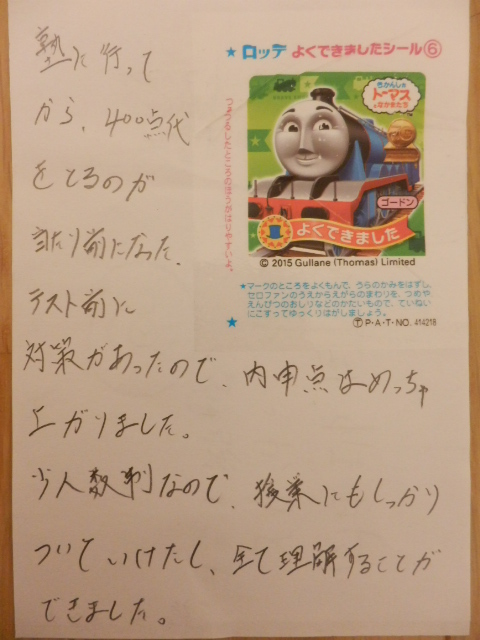 塾に行って
から、400点代
をとるのが
当たり前になった。
テスト前に
対策があったので、内申点はめっちゃ
上がりました。
少人数制なので、授業にもしっかり
ついていけたし、全て理解することが
できました。
★ ロッテ よくできましたシール⑥
きかんしゃ
トーマス
となかまたち
ゴードン
よくできました
つるつるしたところのほうがはりやすいよ。
© 2015 Gullane (Thomas) Limited
★マークのところをよくもんで、うらのかみをはずし、
セロファンのうえからえがらのまわりを、つめや
えんぴつのおしりなどのかたいもので、ていねい
にこすってゆっくりはがしましょう。
★ Ⓣ P・A・T・NO. 414218